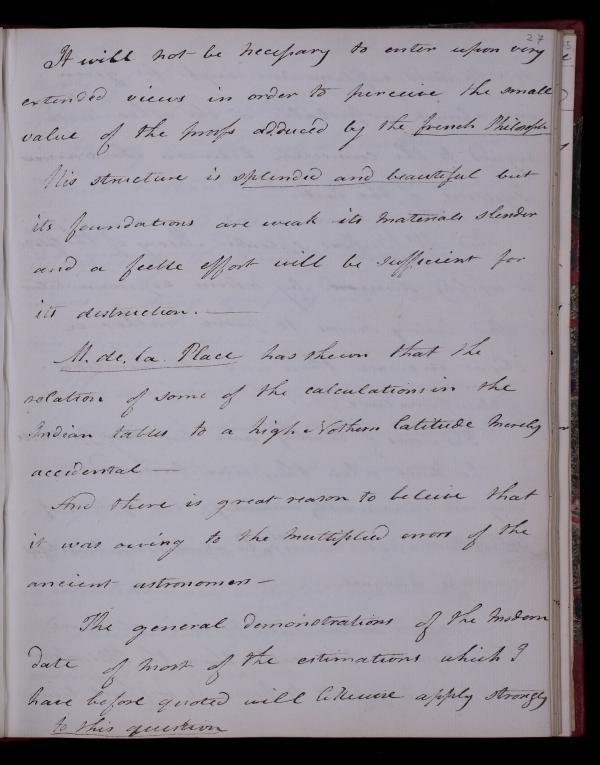 27
It will not be necessary to enter upon very
extended views in order to perceive the small
value of the proofs adduced by the french Philosophe
His structure is splended and beautiful but
its foundations are weak its materials slender
and a feeble effort will be sufficient for
its destruction. —
M. de. la. Place has shewn that the
relation of some of the calculations in the
Indian tables to a high Nothern latitude merely
accidental —
And there is great reason to beleive that
it was owing to the multiplied errors of the
ancient astronomers —
The general demonstrations of the modern
date of most of the estimations which I
have before quoted will likewise apply strongly
to this question